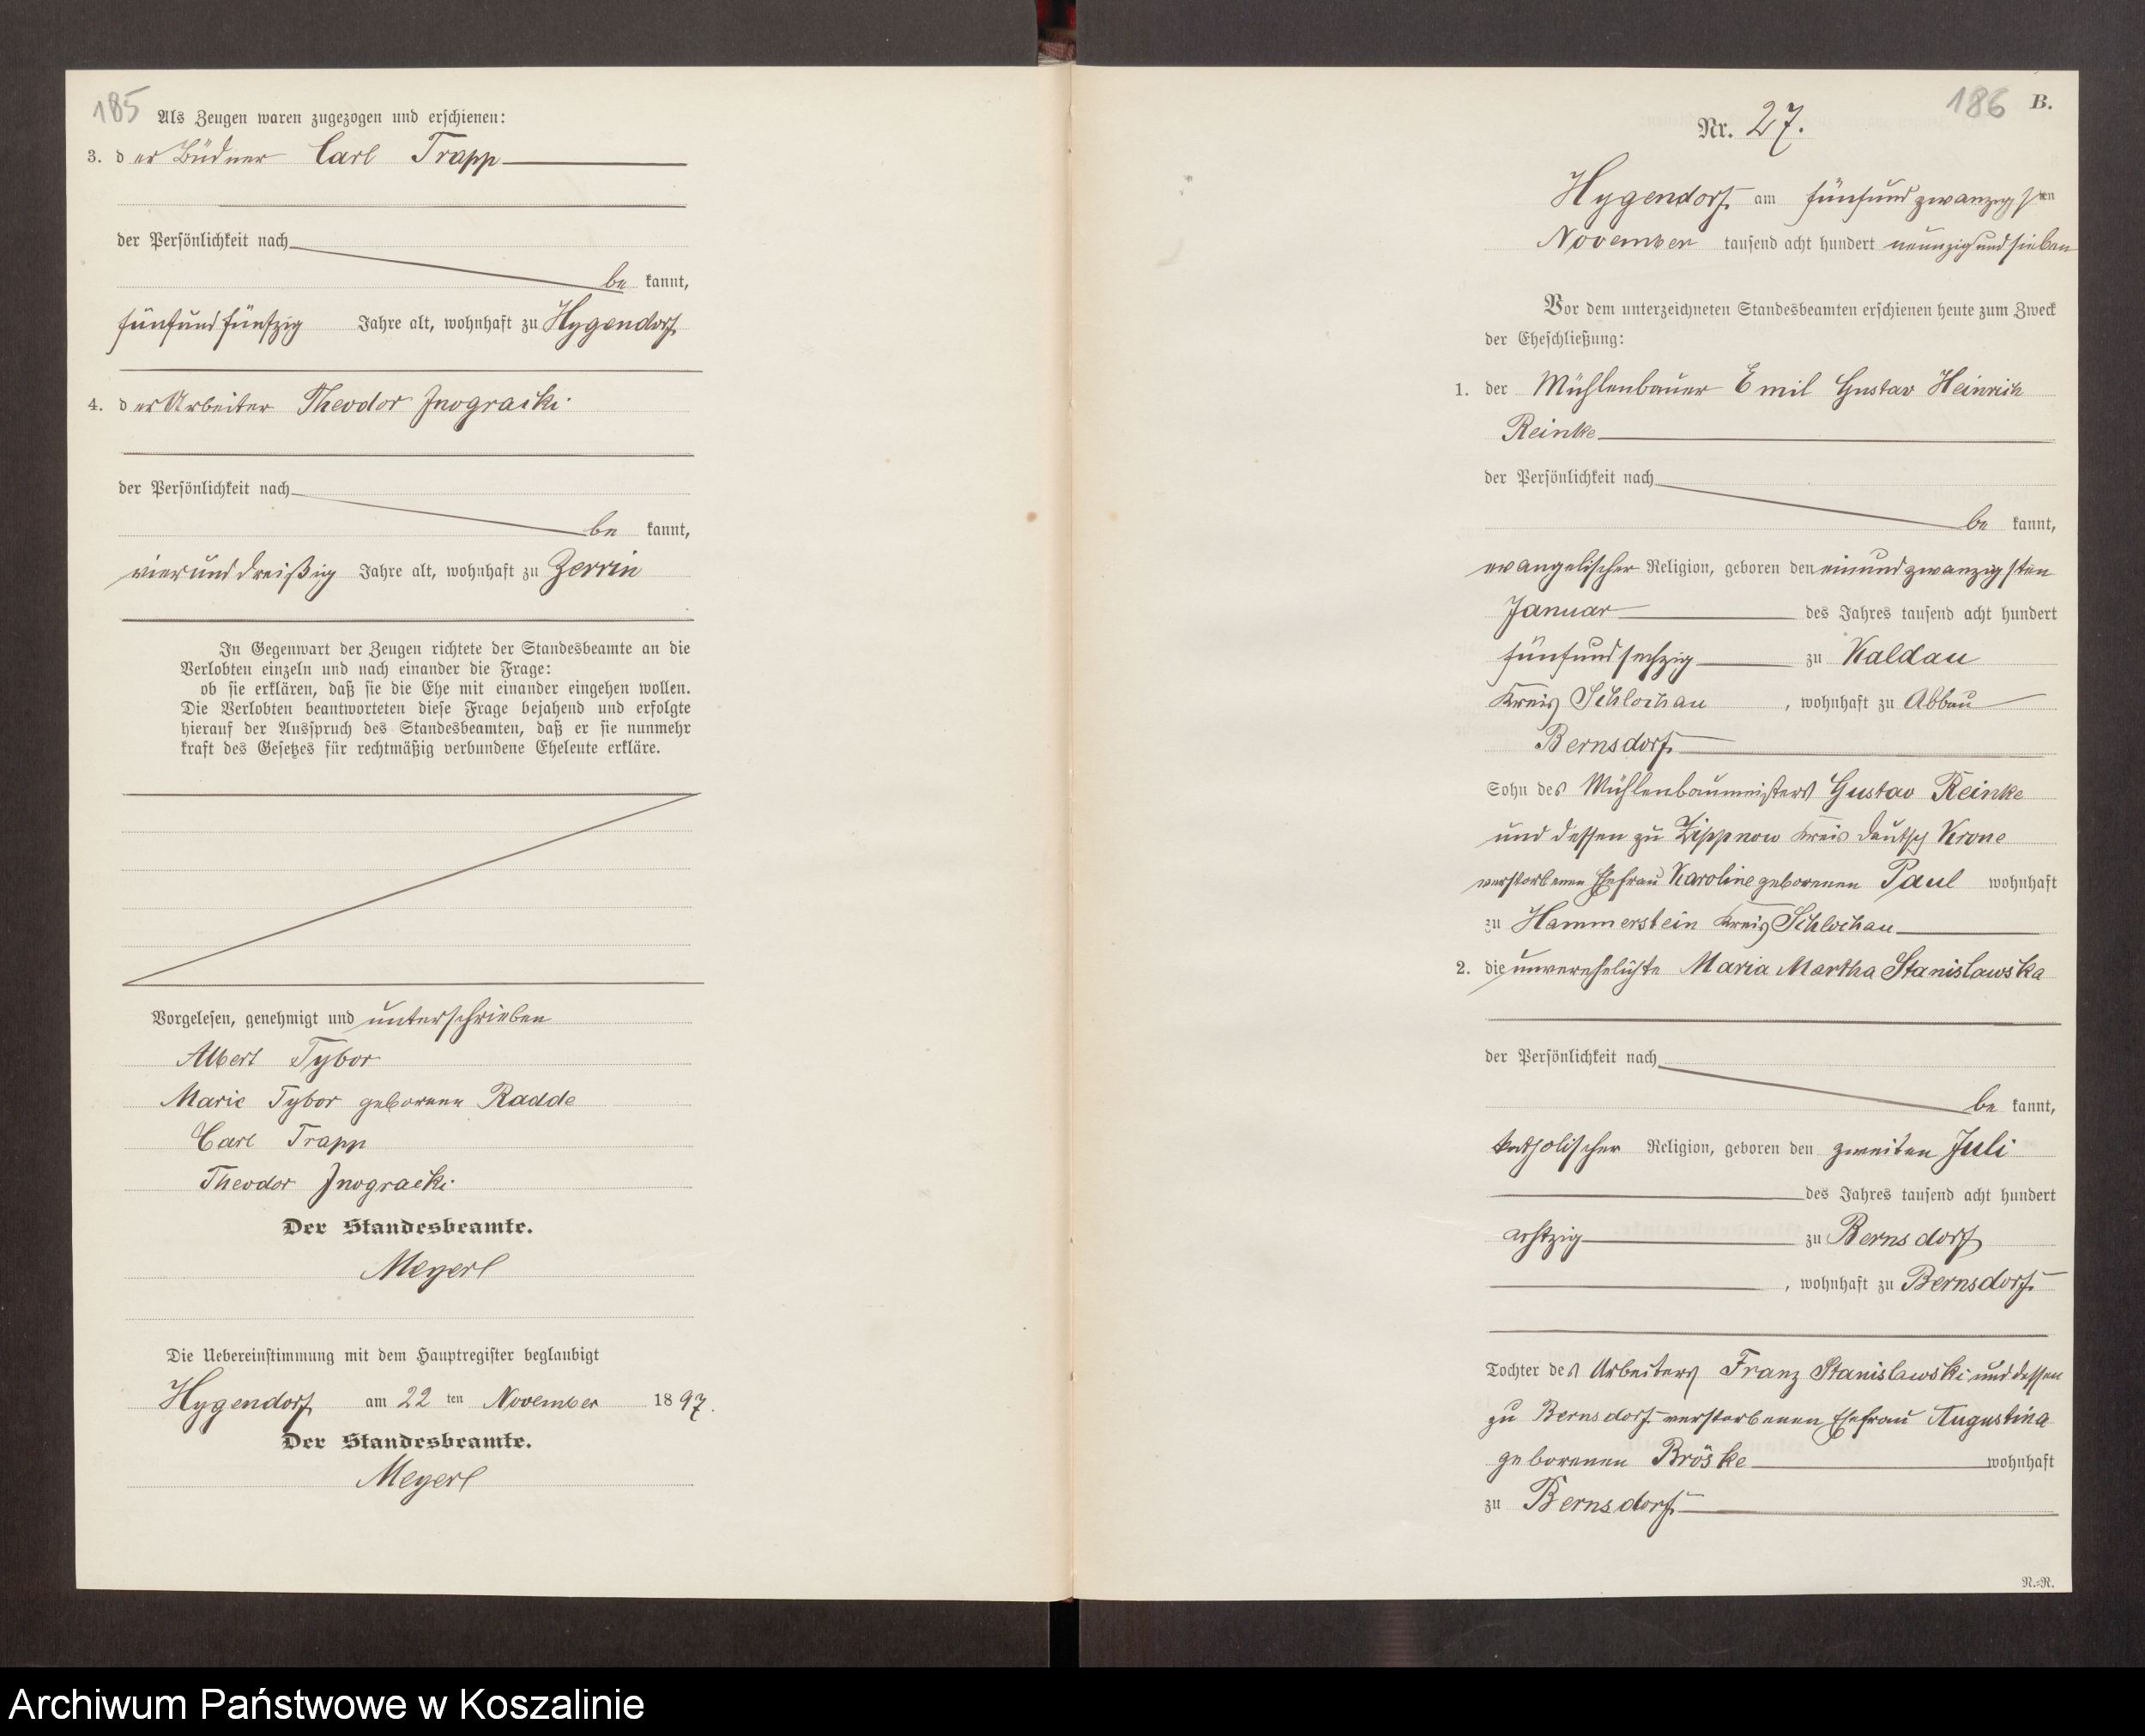 185
Als Zeugen waren zugezogen und erschienen:
3. der Büdner Carl Trapp
der Persönlichkeit nach
be kannt,
fünfundfünfzig Jahre alt, wohnhaft zu Hygendorf
4. der Arbeiter Theodor Jnogracki
der Persönlichkeit nach
be kannt,
vierunddreißig Jahre alt, wohnhaft zu Zerrin
In Gegenwart der Zeugen richtete der Standesbeamte an die
Verlobten einzeln und nach einander die Frage:
ob sie erklären, daß sie die Ehe mit einander eingehen wollen.
Die Verlobten beantworteten diese Frage bejahend und erfolgte
hierauf der Ausspruch des Standesbeamten, daß er sie nunmehr
kraft des Gesetzes für rechtmäßig verbundene Eheleute erkläre.
Vorgelesen, genehmigt und unterschrieben
Albert Tybor
Marie Tybor geborene Radde
Carl Trapp
Theodor Jnogracki
Der Standesbeamte.
Meyerl
Die Uebereinstimmung mit dem Hauptregister beglaubigt
Hygendorf am 22 ten November 1897.
Der Standesbeamte.
Meyerl
186 B.
Nr. 27.
Hygendorf am fünfundzwanzigsten
November tausend acht hundert neunzig und sieben
Vor dem unterzeichneten Standesbeamten erschienen heute zum Zweck
der Eheschließung:
1. der Mühlenbauer Emil Gustav Heinrich
Reinke
der Persönlichkeit nach
be kannt,
evangelischer Religion, geboren den einundzwanzigsten
Januar des Jahres tausend acht hundert
fünfundsechzig zu Kaldau
Kreis Schlochau, wohnhaft zu Abbau
Bernsdorf
Sohn des Mühlenbaumeisters Gustav Reinke
und dessen zu Zippnow Kreis Deutsch Krone
verstorbenen Ehefrau Karoline geborenen Paul wohnhaft
zu Hammerstein Kreis Schlochau
2. die unverehelichte Maria Martha Stanislawska
der Persönlichkeit nach
be kannt,
katholischer Religion, geboren den zweiten Juli
des Jahres tausend acht hundert
achtzig zu Bernsdorf
, wohnhaft zu Bernsdorf
Tochter des Arbeiters Franz Stanislawski und dessen
zu Bernsdorf verstorbenen Ehefrau Augustina
geborenen Bröske wohnhaft
zu Bernsdorf
N.=N.
Archiwum Państwowe w Koszalinie